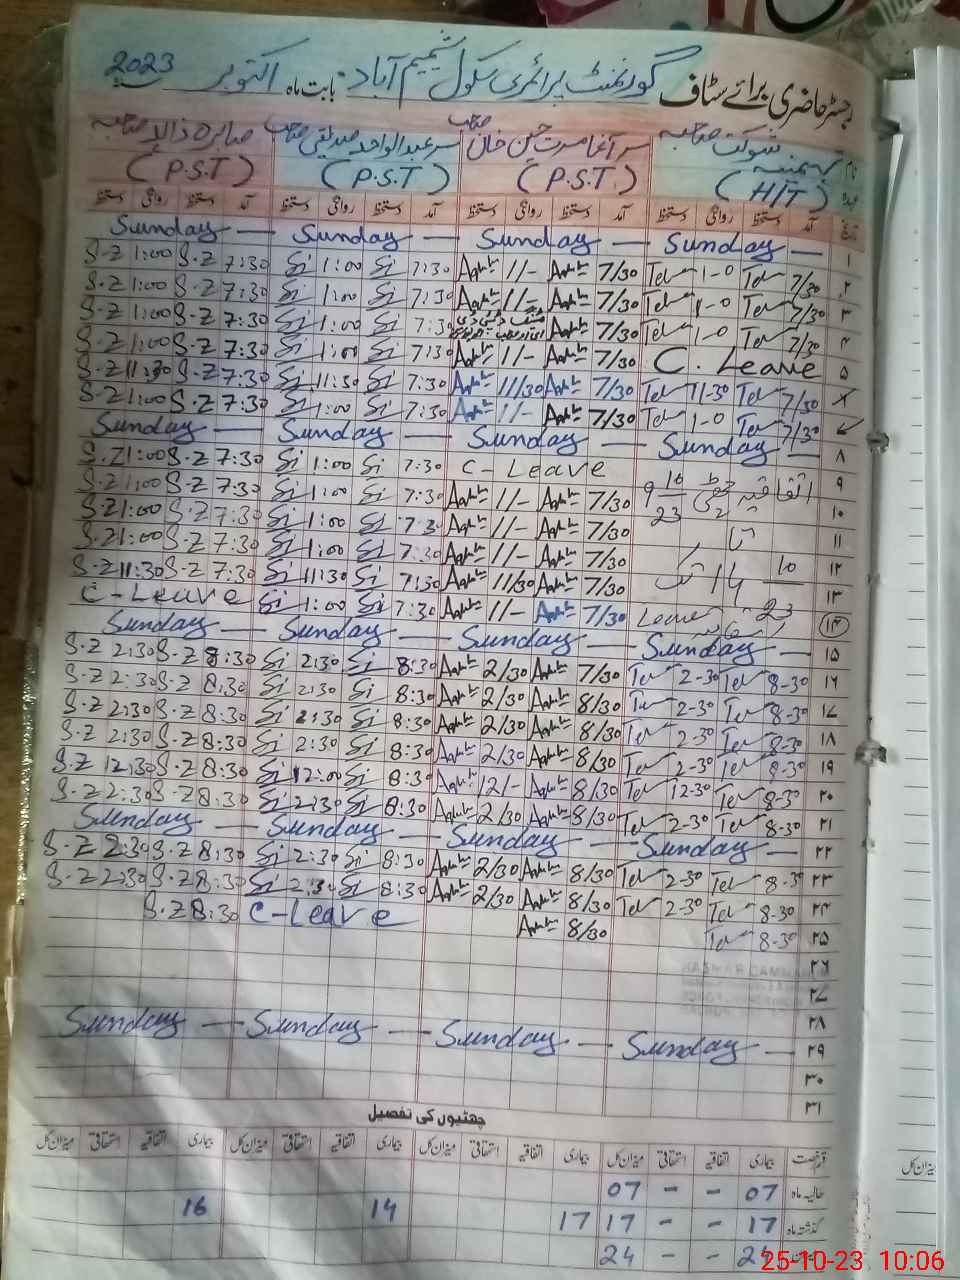 رجسٹر حاضری برائے سٹاف گورنمنٹ پرائمری سکول شمیم آباد بابت ماہ اکتوبر 2023
نام شوکت صاحبہ سر آغا مسرت حسین خان صاحب سر عبدالواحد صدیقی صاحب صابرہ ذالد صاحبہ
عہدہ (H/T) (P.S.T) (P.S.T) (P.S.T)
تاریخ آمد دستخط روانگی دستخط آمد دستخط روانگی دستخط آمد دستخط روانگی دستخط آمد دستخط روانگی دستخط
Sunday — Sunday — Sunday — Sunday — ۱
S-Z 1:00 S-Z 7:30 Si 1:00 Si 7:30 1/- 7/30 1-0 7/30 ۲
S-Z 1:00 S-Z 7:30 Si 1:00 Si 7:30 1/- 7/30 1-0 7/30 ۳
S-Z 1:00 S-Z 7:30 Si 1:00 Si 7:30 7/30 1-0 7/30 ۴
S-Z 1:00 S-Z 7:30 Si 1:00 Si 7:30 1/- 7/30 C. Leave ۵
S-Z 11:30 S-Z 7:30 Si 11:30 Si 7:30 11/30 7/30 11-30 7/30
S-Z 1:00 S-Z 7:30 Si 1:00 Si 7:30 1/- 7/30 1-0 7/30
Sunday — Sunday — Sunday — Sunday — ۸
S.Z 1:00 S-Z 7:30 Si 1:00 Si 7:30 C-Leave 9 10 23 اتفاقیہ چھٹی ۹
S-Z 1:00 S-Z 7:30 Si 1:00 Si 7:30 1/- 7/30 ۱۰
S-Z 1:00 S-Z 7:30 Si 1:00 Si 7:30 1/- 7/30 تا ۱۱
S-Z 1:00 S-Z 7:30 Si 1:00 Si 7:30 1/- 7/30 ۱۲
S-Z 11:30 S-Z 7:30 Si 11:30 Si 7:30 11/30 7/30 14 10 23 تک ۱۳
C-Leave Si 1:00 Si 7:30 1/- 7/30 Leave ۱۴
Sunday — Sunday — Sunday — Sunday — ۱۵
S-Z 2:30 S-Z 8:30 Si 2:30 Si 8:30 2/30 7/30 2-30 8-30 ۱۶
S-Z 2:30 S-Z 8:30 Si 2:30 Si 8:30 2/30 8/30 2-30 8-30 ۱۷
S-Z 2:30 S-Z 8:30 Si 2:30 Si 8:30 2/30 8/30 2-30 8-30 ۱۸
S-Z 2:30 S-Z 8:30 Si 2:30 Si 8:30 2/30 8/30 2-30 8-30 ۱۹
S-Z 12:30 S-Z 8:30 Si 12:00 Si 8:30 12/- 8/30 12-30 8-30 ۲۰
S-Z 2:30 S-Z 8:30 Si 2:30 Si 8:30 2/30 8/30 2-30 8-30 ۲۱
Sunday — Sunday — Sunday — Sunday — ۲۲
S-Z 2:30 S-Z 8:30 Si 2:30 Si 8:30 2/30 8/30 2-30 8-30 ۲۳
S-Z 2:30 S-Z 8:30 Si 2:30 Si 8:30 2/30 8/30 2-30 8-30 ۲۴
S-Z 8:30 C-Leave 8/30 8-30 ۲۵
۲۶
۲۷
۲۸
Sunday — Sunday — Sunday — Sunday — ۲۹
۳۰
۳۱
چھٹیوں کی تفصیل
قسم رخصت بیماری اتفاقیہ استحقاقی میزان کل بیماری اتفاقیہ استحقاقی میزان کل بیماری اتفاقیہ استحقاقی میزان کل بیماری اتفاقیہ استحقاقی میزان کل
حالیہ ماہ 07 - - 07
گذشتہ ماہ 17 - - 17 17 14 16
24 - - 24
میزان کل
25-10-23 10:06